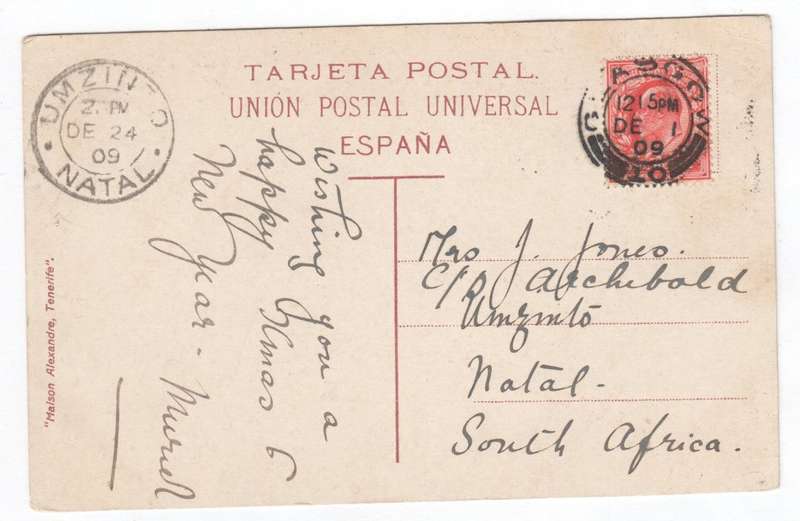 TARJETA POSTAL.
UNIÓN POSTAL UNIVERSAL
ESPAÑA
UMZINTO
2 PM
DE 24
09
NATAL
GLASGOW
12 15PM
DE 1
09
10
wishing you a
happy Xmas &
New Year - Muriel
Mrs J. Jones.
C/o Archibold
Umzinto
Natal.
South Africa.
"Maison Alexandre, Tenerife".